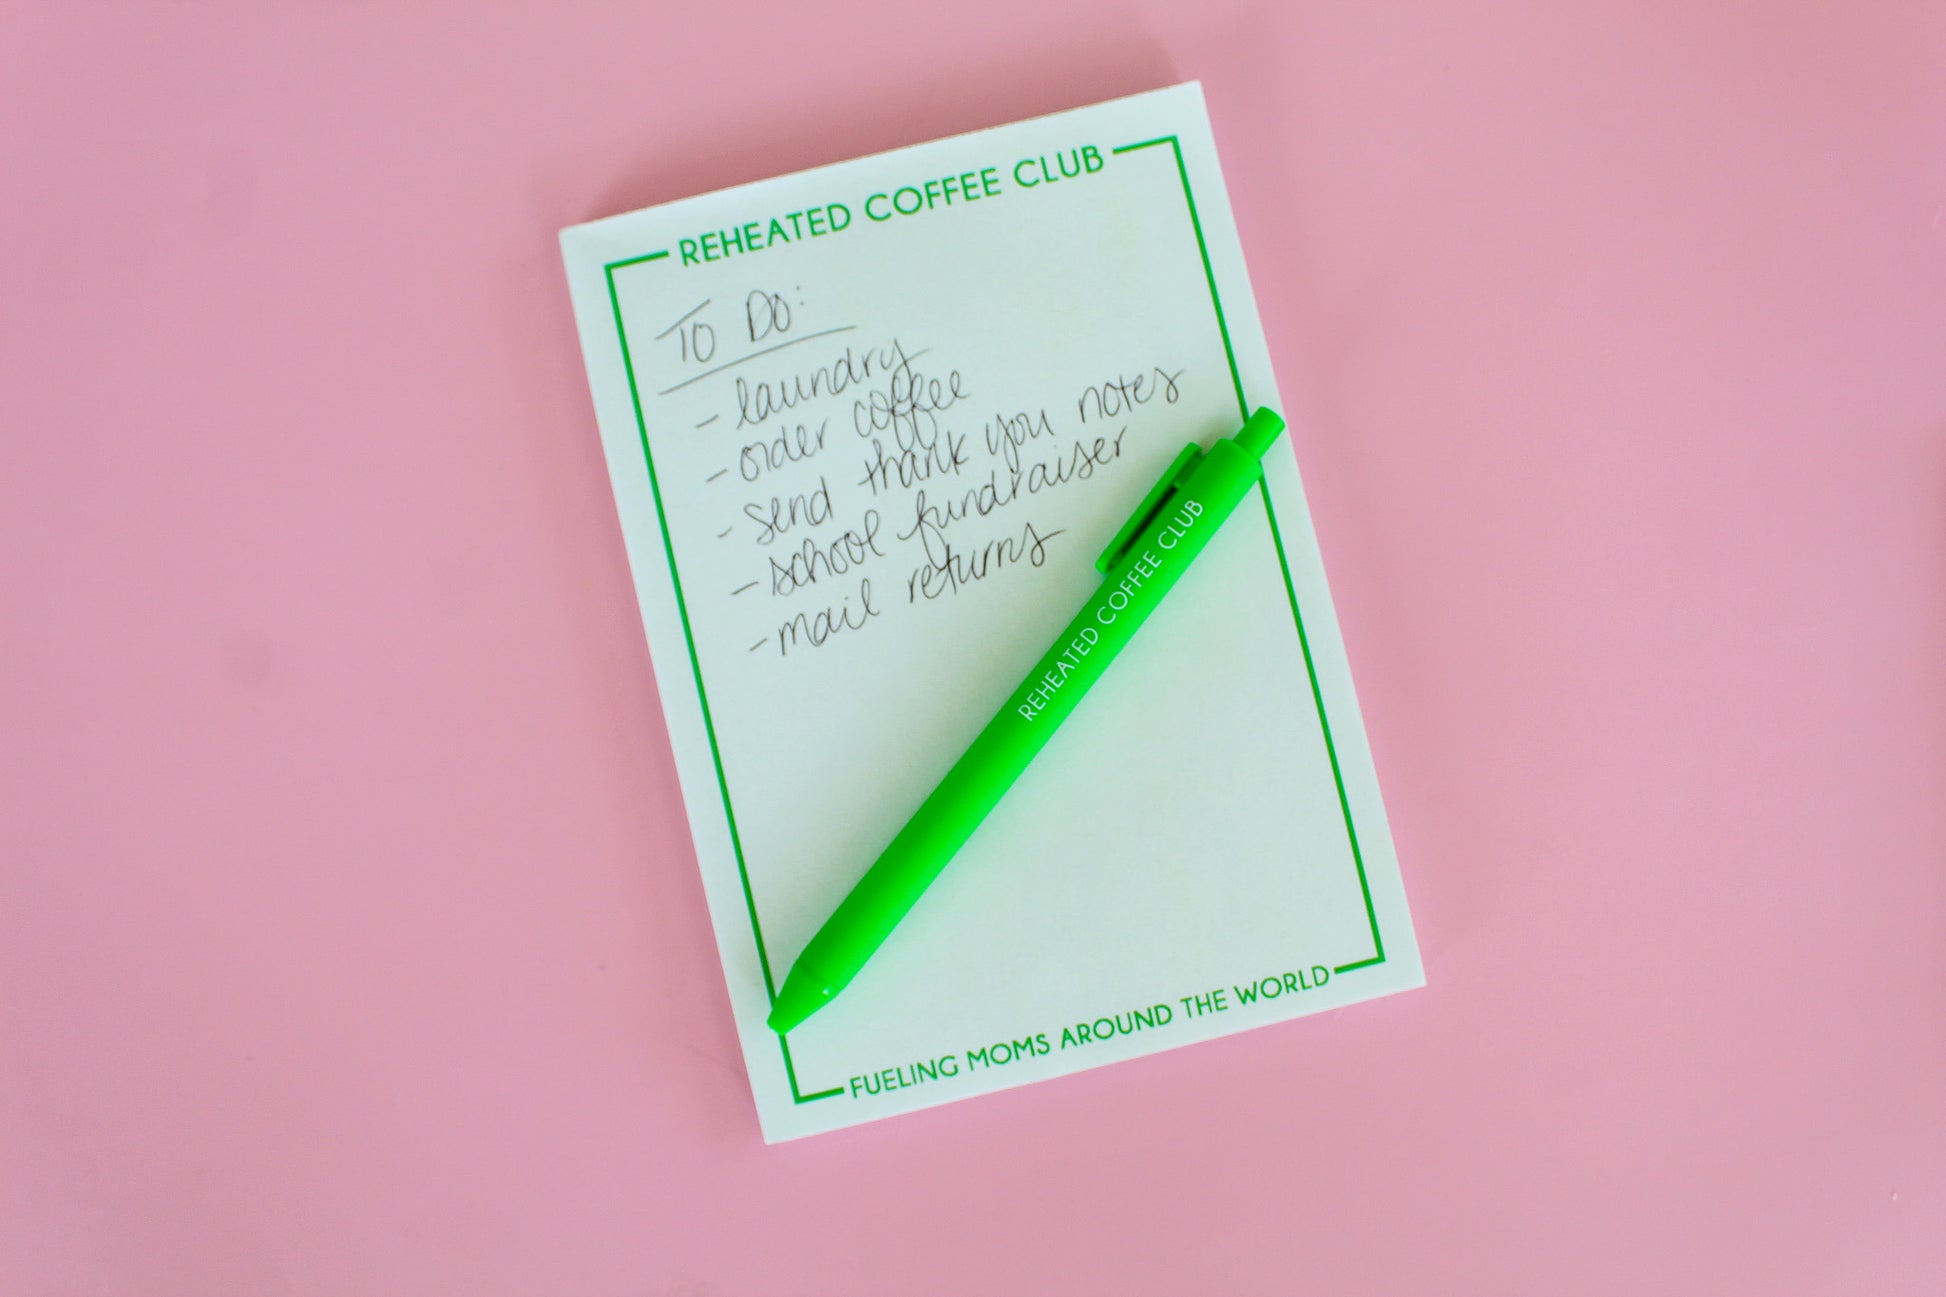 REHEATED COFFEE CLUB
TO DO:
- laundry
- order coffee
- send thank you notes
- school fundraiser
- mail returns
REHEATED COFFEE CLUB
FUELING MOMS AROUND THE WORLD